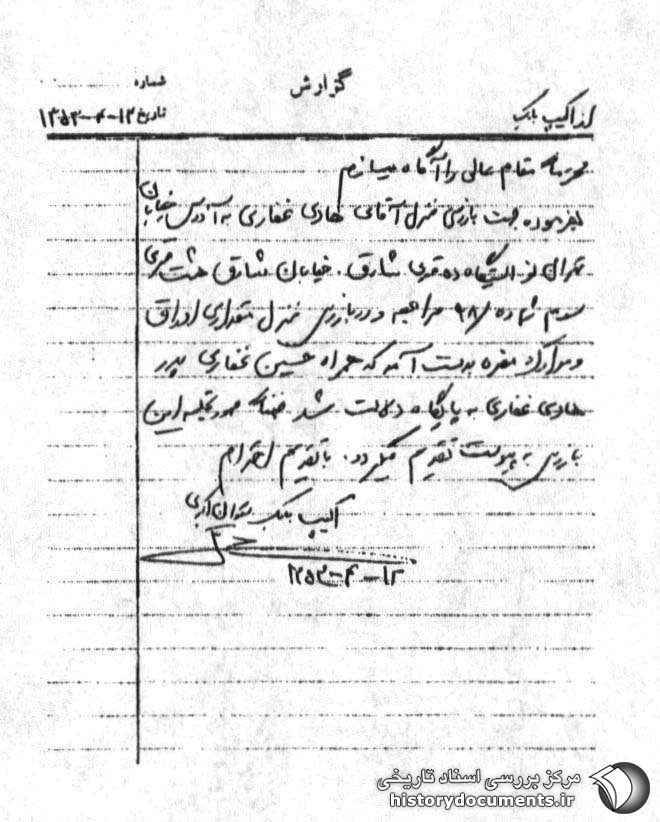 گزارش
شماره
از اکیپ بابک
تاریخ ۱۲-۴-۱۳۵۳
محترماً مقام عالی را آگاه میسازم
بفرموده جهت بازرسی منزل آقای هادی غفاری به آدرس خیابان
تهران نو ایستگاه ده متری شارق. خیابان شارق هشت متری
سوم شماره ۹۸ مراجعه و در بازرسی منزل مقداری اوراق
و مدارک مضره بدست آمد که همراه حسین غفاری پدر
هادی غفاری به پایگاه دلالت شد ضمناً صورتجلسه این
بازرسی به پیوست تقدیم میگردد. با تقدیم احترام
اکیپ بابک
۱۲-۴-۱۳۵۳
مرکز بررسی اسناد تاریخی
historydocuments.ir